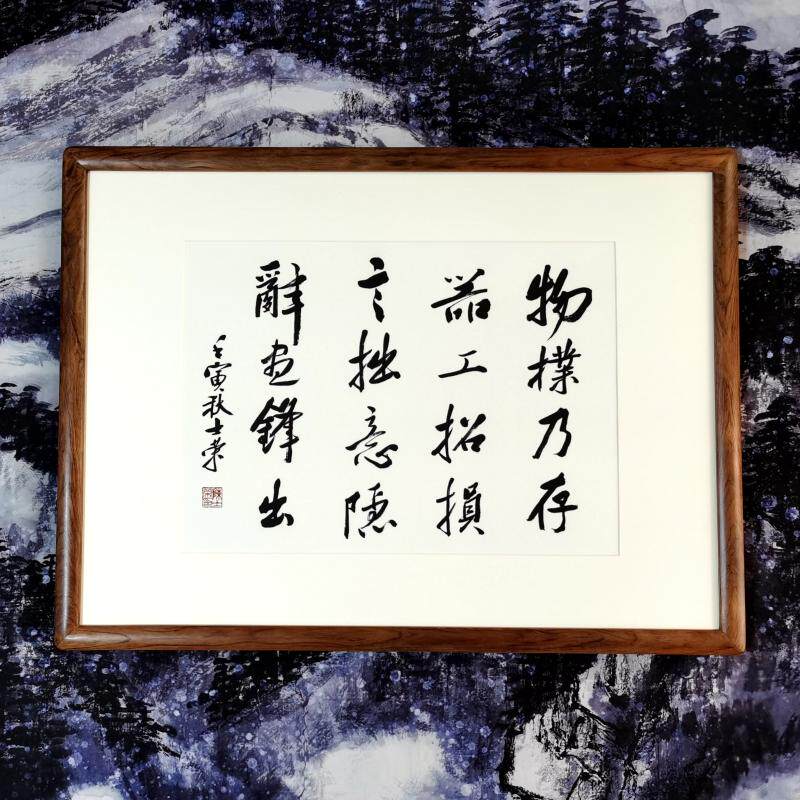 物樸乃存
器工招損
言拙意隱
辭盡鋒出
壬寅秋士榮